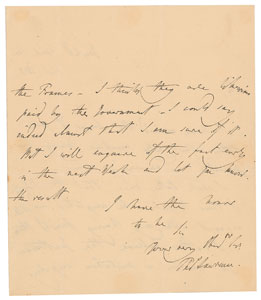 the Frames – I think they are
paid by the Government – I could say
indeed almost that I am sure of it.
But I will enquire of the fact early
in the next Week and let you know
the result
I have the honor
to be Sir
your very
Tho? Lawrence.